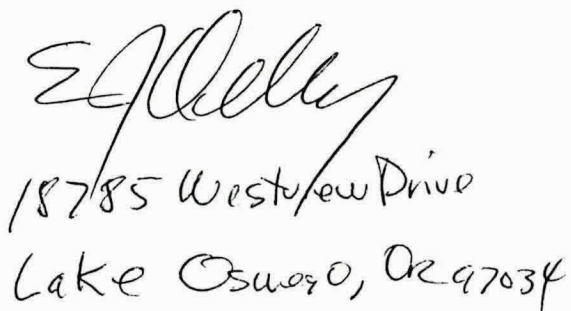 18785 Westview Drive
Lake Oswego, OR 97034